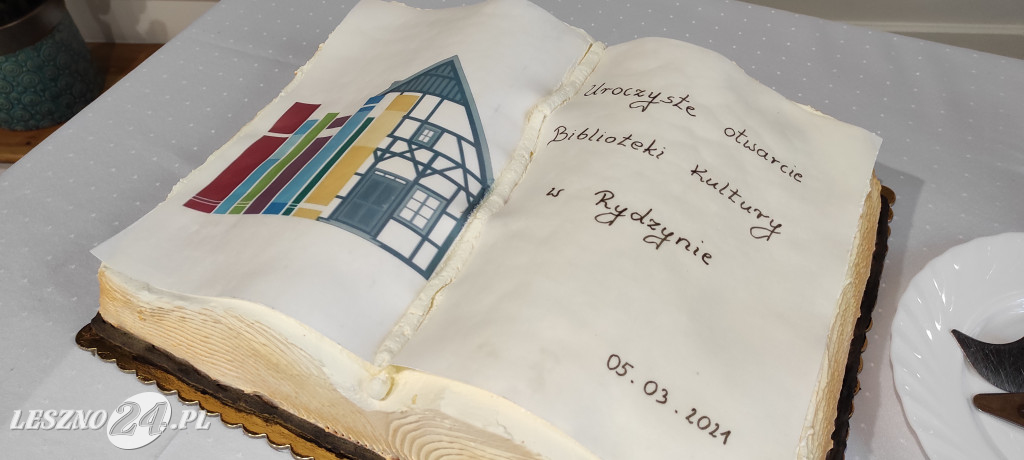 Uroczyste otwarcie
Biblioteki Kultury
w Rydzynie
05.03.2021
LESZNO24.PL